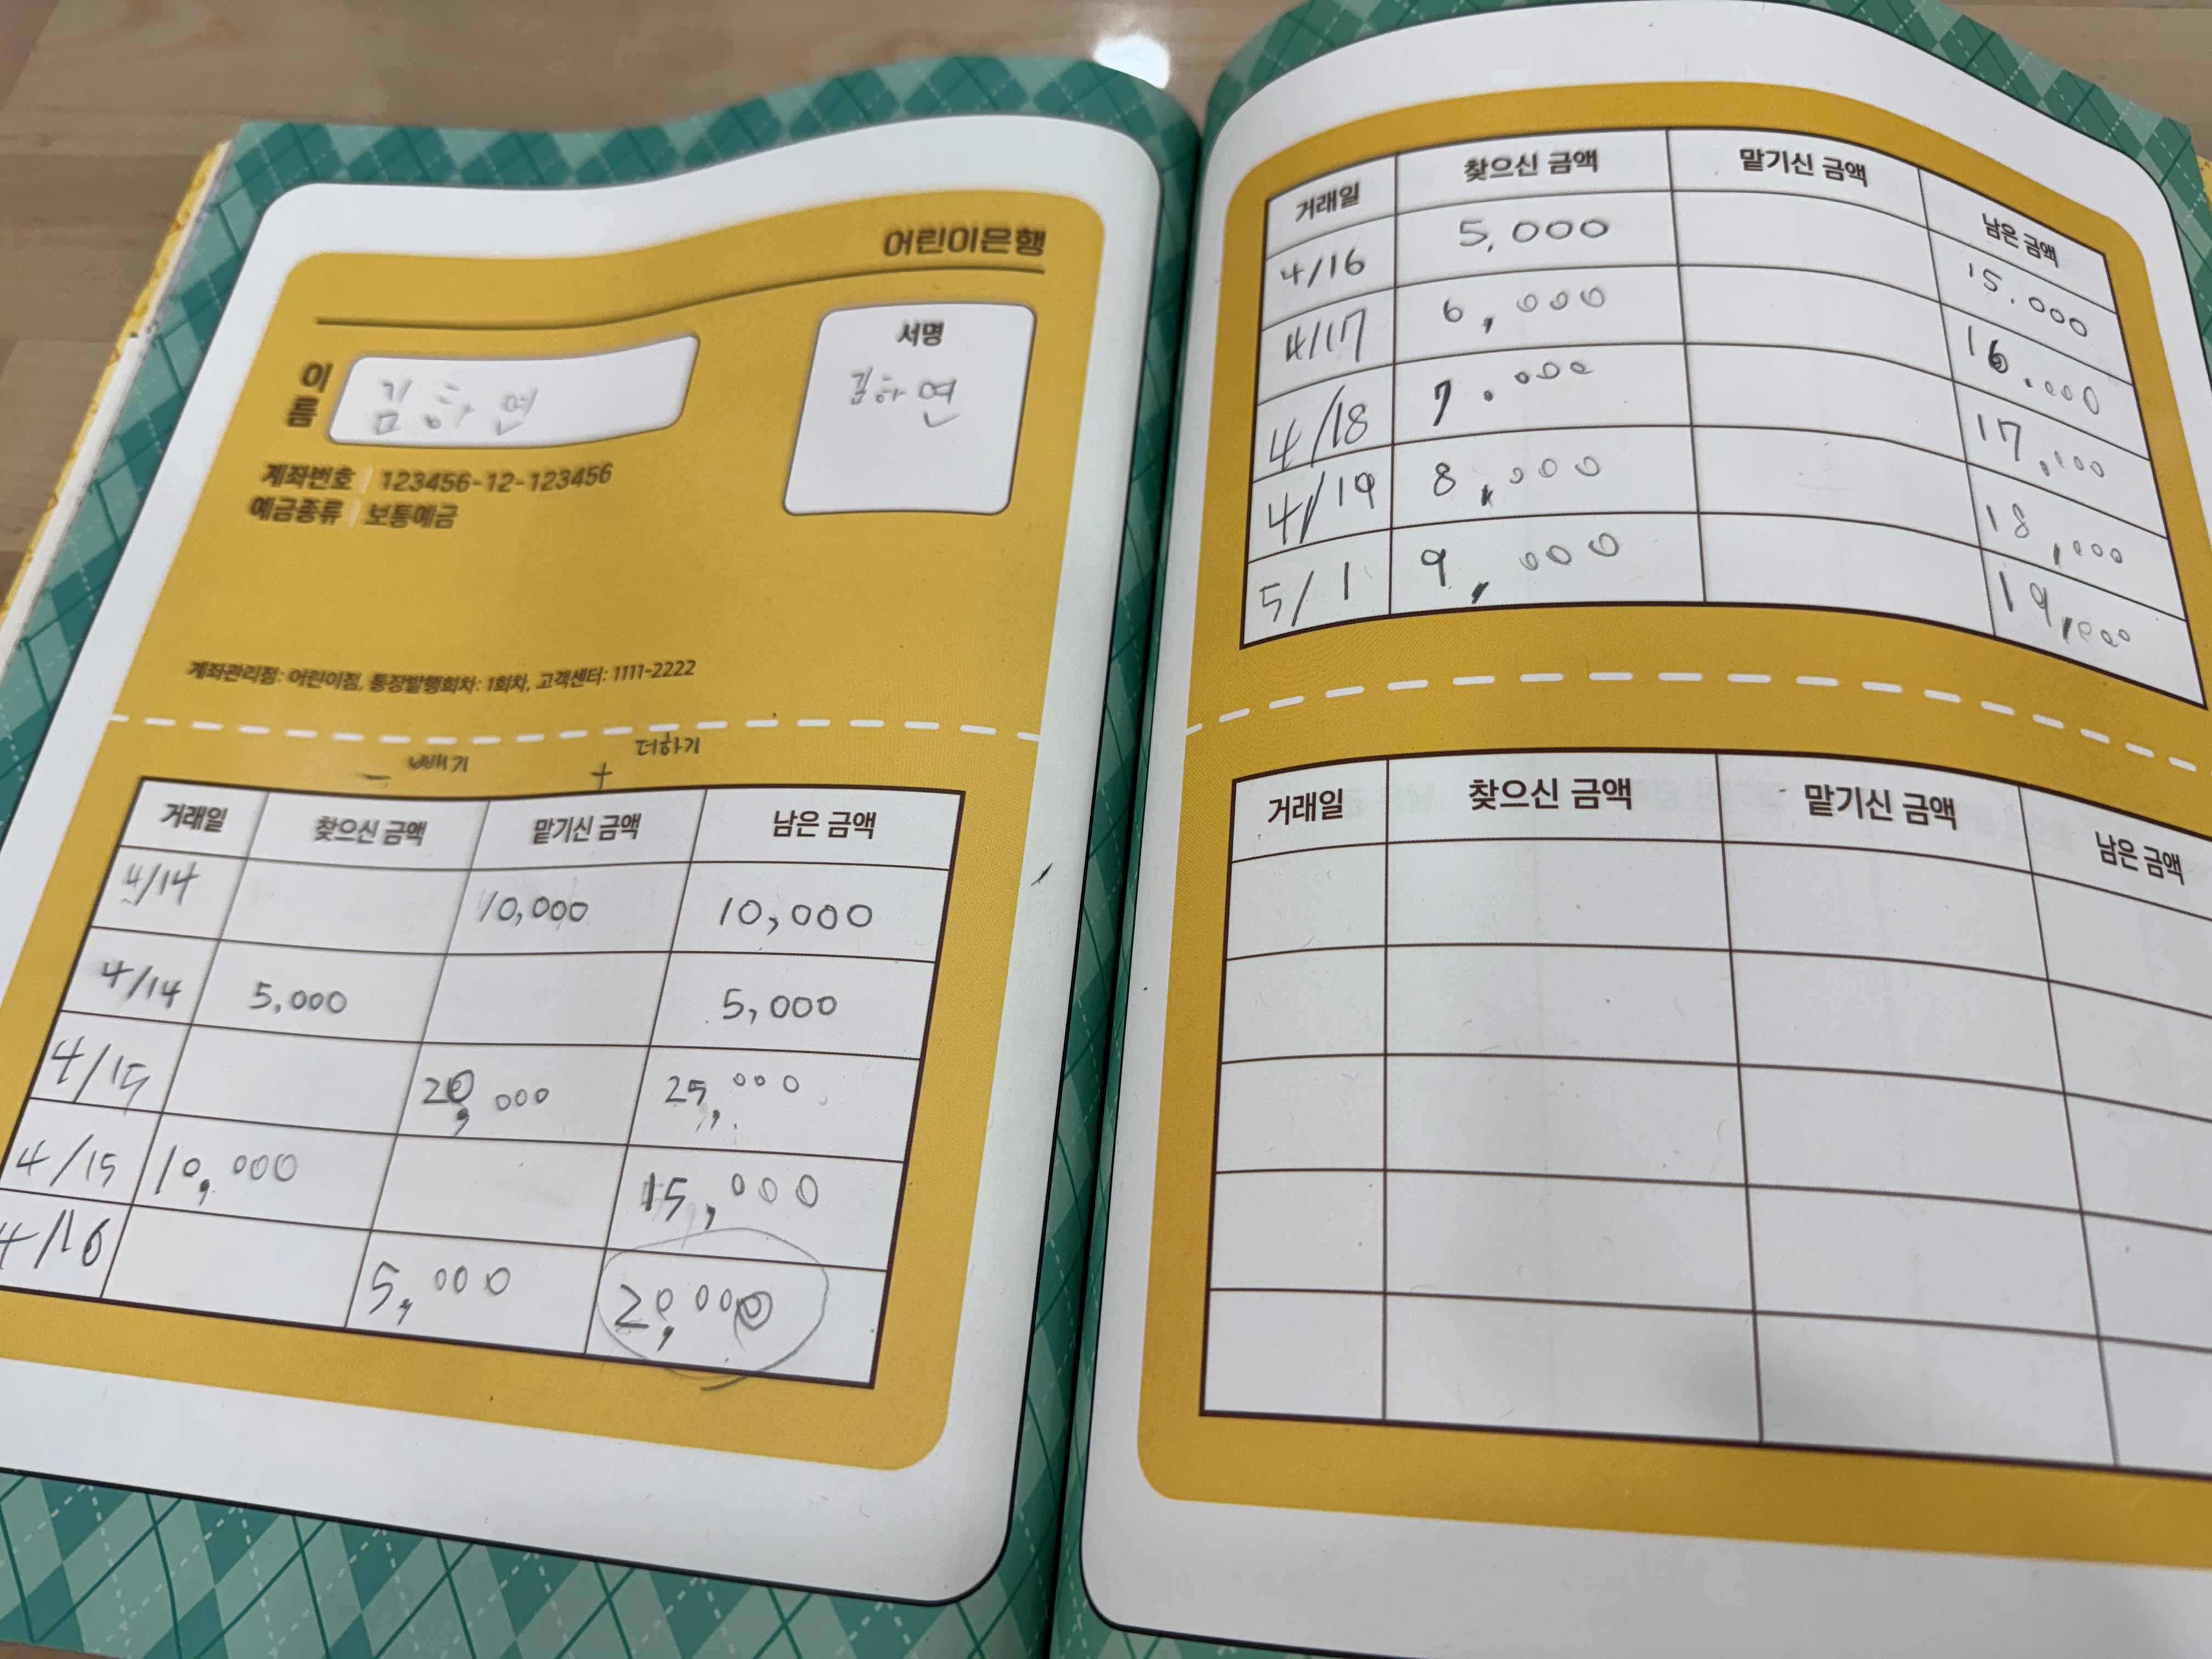 어린이은행
이름 김하연
서명
김하연
계좌번호 | 123456-12-123456
예금종류 | 보통예금
계좌관리점: 어린이점, 통장발행회차: 1회차, 고객센터: 1111-2222
- 빼기 + 더하기
거래일 찾으신 금액 맡기신 금액 남은 금액
4/14 10,000 10,000
4/14 5,000 5,000
4/15 20,000 25,000
4/15 10,000 15,000
4/16 5,000 20,000
거래일 찾으신 금액 맡기신 금액 남은 금액
4/16 5,000 15.000
4/17 6,000 16.000
4/18 7.000 17,000
4/19 8,000 18,000
5/1 9,000 19,000
거래일 찾으신 금액 맡기신 금액 남은 금액